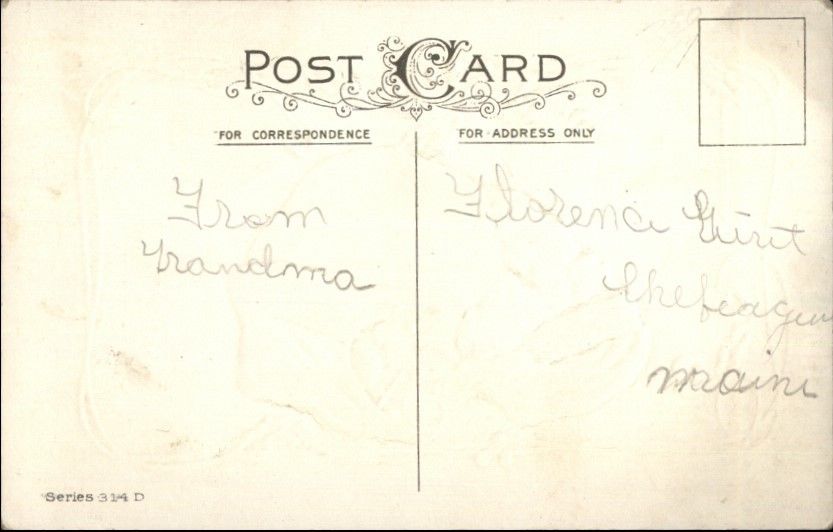 POST CARD
FOR CORRESPONDENCE
FOR ADDRESS ONLY
From
Grandma
Florence
Maine
Series 314 D